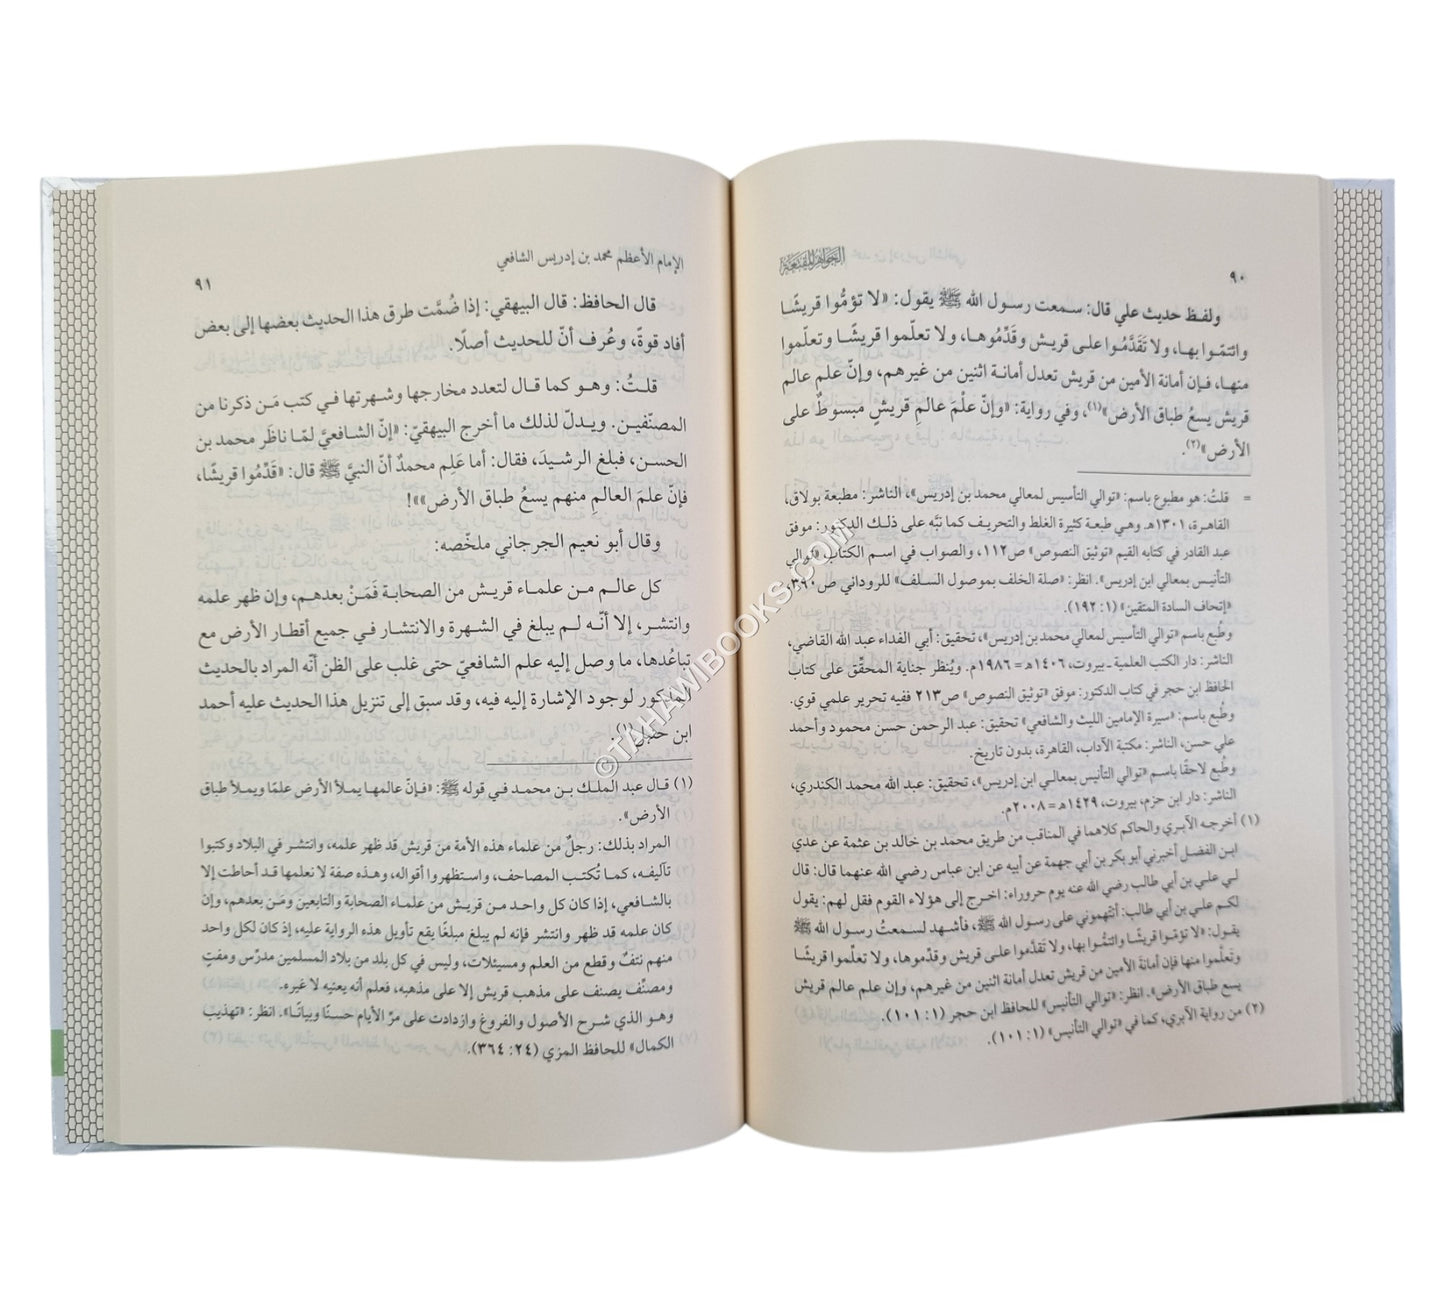 ٩٠
ولفظ حديث علي قال: سمعت رسول الله ﷺ يقول: «لا تؤمُّوا قريشًا
وائتمّوا بها، ولا تَقَدَّمُوا على قريش وقَدِّمُوها، ولا تعلّموا قريشًا وتعلّموا
منها، فإن أمانة الأمين من قريش تعدل أمانة اثنين من غيرهم، وإنّ علم عالم
قريش يسعُ طباق الأرض»(١)، وفي رواية: «وإنّ علْمَ عالمِ قريشٍ مبسوطٌ على
الأرض»(٢).
= قلتُ: هو مطبوع باسم: «توالي التأسيس لمعالي محمد بن إدريس»، الناشر: مطبعة بولاق،
القاهرة، ١٣٠١هـ. وهي طبعة كثيرة الغلط والتحريف كما نبَّه على ذلك الدكتور: موفق
عبد القادر في كتابه القيم «توثيق النصوص» ص١١٢، والصواب في اسم الكتاب «توالي
التأنيس بمعالي ابن إدريس». انظر: «صلة الخلف بموصول السلف» للروداني ص٣٩٠،
«إتحاف السادة المتقين» (١: ١٩٢).
وطُبع باسم «توالي التأسيس لمعالي محمد بن إدريس»، تحقيق: أبي الفداء عبد الله القاضي،
الناشر: دار الكتب العلمية ـ بيروت، ١٤٠٦هـ = ١٩٨٦م. ويُنظر جناية المحقّق على كتاب
الحافظ ابن حجر في كتاب الدكتور: موفق «توثيق النصوص» ص٢١٣ ففيه تحرير علمي قوي.
وطُبع باسم: «سيرة الإمامين الليث والشافعي» تحقيق: عبد الرحمن حسن محمود وأحمد
علي حسن، الناشر: مكتبة الآداب، القاهرة، بدون تاريخ.
وطُبع لاحقًا باسم «توالي التأنيس بمعالي ابن إدريس»، تحقيق: عبد الله محمد الكندري،
الناشر: دار ابن حزم، بيروت، ١٤٢٩هـ = ٢٠٠٨م.
(١) أخرجه الآبري والحاكم كلاهما في المناقب من طريق محمد بن خالد بن عثمة عن عدي
ابن الفضل أخبرني أبو بكر بن أبي جهمة عن أبيه عن ابن عباس رضي الله عنهما قال: قال
لي علي بن أبي طالب رضي الله عنه يوم حروراء: اخرج إلى هؤلاء القوم فقل لهم: يقول
لكم علي بن أبي طالب: أتتهموني على رسول الله ﷺ، فأشهد لسمعتُ رسول الله ﷺ
يقول: «لا تؤمّوا قريشًا وائتمُّوا بها، ولا تَقدَّموا على قريش وقدِّموها، ولا تعلّموا قريشًا
وتعلَّموا منها فإن أمانةَ الأمين من قريش تعدل أمانة اثنين من غيرهم، وإن علم عالم قريش
يسع طباق الأرض». انظر: «توالي التأنيس» للحافظ ابن حجر (١: ١٠١).
(٢) من رواية الآبري، كما في «توالي التأنيس» (١: ١٠١).
الإمام الأعظم محمد بن إدريس الشافعي
٩١
قال الحافظ: قال البيهقي: إذا ضُمَّت طرق هذا الحديث بعضها إلى بعض
أفاد قوةً، وعُرف أنّ للحديث أصلًا.
قلتُ: وهو كما قال لتعدد مخارجها وشهرتها في كتب مَن ذكرنا من
المصنّفين. ويدلّ لذلك ما أخرج البيهقيّ: «إنّ الشافعيَّ لمّا ناظَر محمد بن
الحسن، فبلغ الرشيدَ، فقال: أما عَلِم محمدٌ أنّ النبيَّ ﷺ قال: «قَدِّمُوا قريشًا،
فإنّ علمَ العالمِ منهم يسعُ طباق الأرض»»!
وقال أبو نعيم الجرجاني ملخّصه:
كل عالم من علماء قريش من الصحابة فَمَنْ بعدهم، وإن ظهر علمه
وانتشر، إلا أنّه لم يبلغ في الشهرة والانتشار في جميع أقطار الأرض مع
تباعُدها، ما وصل إليه علم الشافعيّ حتى غلب على الظن أنّه المراد بالحديث
المذكور لوجود الإشارة إليه فيه، وقد سبق إلى تنزيل هذا الحديث عليه أحمد
ابن حنبل(١).
(١) قال عبد الملك بن محمد في قوله ﷺ: «فإنّ عالمها يملأ الأرض علمًا ويملأ طباق
الأرض».
المراد بذلك: رجلٌ من علماء هذه الأمة من قريش قد ظهر علمه، وانتشر في البلاد وكتبوا
تآليفه، كما تُكتب المصاحف، واستظهروا أقواله، وهذه صفة لا نعلمها قد أحاطت إلا
بالشافعي، إذا كان كل واحد من قريش من علماء الصحابة والتابعين ومَن بعدهم، وإن
كان علمه قد ظهر وانتشر فإنه لم يبلغ مبلغًا يقع تأويل هذه الرواية عليه، إذ كان لكل واحد
منهم نتفٌ وقطع من العلم ومسيئلات، وليس في كل بلد من بلاد المسلمين مدرّس ومفتٍ
ومصنّف يصنف على مذهب قريش إلا على مذهبه، فعلم أنه يعنيه لا غيره.
وهو الذي شرح الأصول والفروغ وازدادت على مرّ الأيام حسنًا وبيانًا». انظر: «تهذيب
الكمال» للحافظ المزي (٢٤: ٣٦٤).
©TAHAWIBOOKS.COM